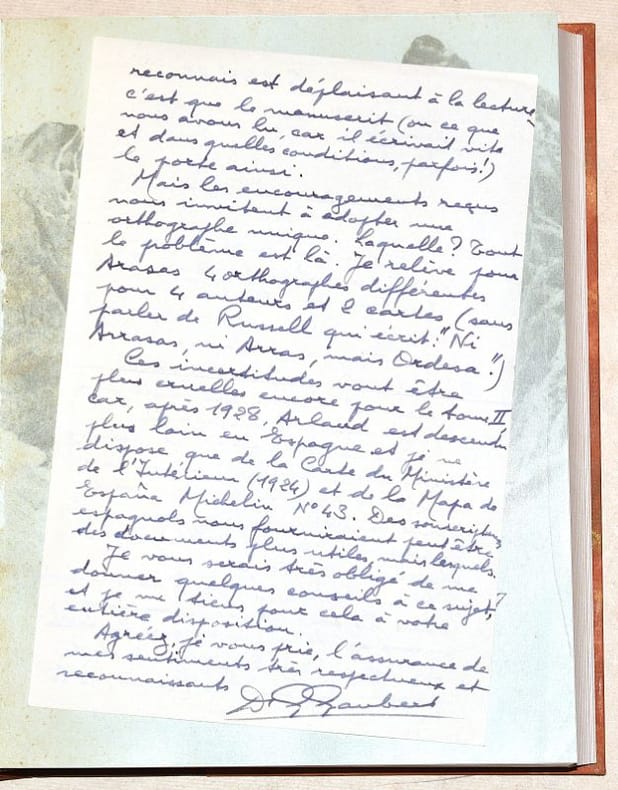 reconnais est déplaisant à la lecture,
c'est que le manuscrit (ou ce que
nous avons lu, car il écrivait vite
et dans quelles conditions, parfois!)
le porte ainsi.
Mais les encouragements reçus
nous invitent à adopter une
orthographe unique. Laquelle? Tout
le problème est là. Je relève pour
Arasas 4 orthographes différentes
pour 4 auteurs et 2 cartes (sans
parler de Russell qui écrit: "Ni
Arrasas, ni Arras, mais Ordesa"!)
Ces incertitudes vont être
plus cruelles encore pour le tome II
car, après 1928, Arlaud est descendu
plus loin en Espagne et je ne
dispose que de la Carte du Ministère
de l'Intérieur (1924) et de la Mapa de
España Michelin N° 43. Des souscripteurs
espagnols nous fourniraient peut-être
des documents plus utiles, mais lesquels?
Je vous serais très obligé de me
donner quelques conseils à ce sujet,
et je me tiens pour cela à votre
entière disposition.
Agréez, je vous prie, l'assurance de
mes sentiments très respectueux et
reconnaissants
Dr G Gaubert